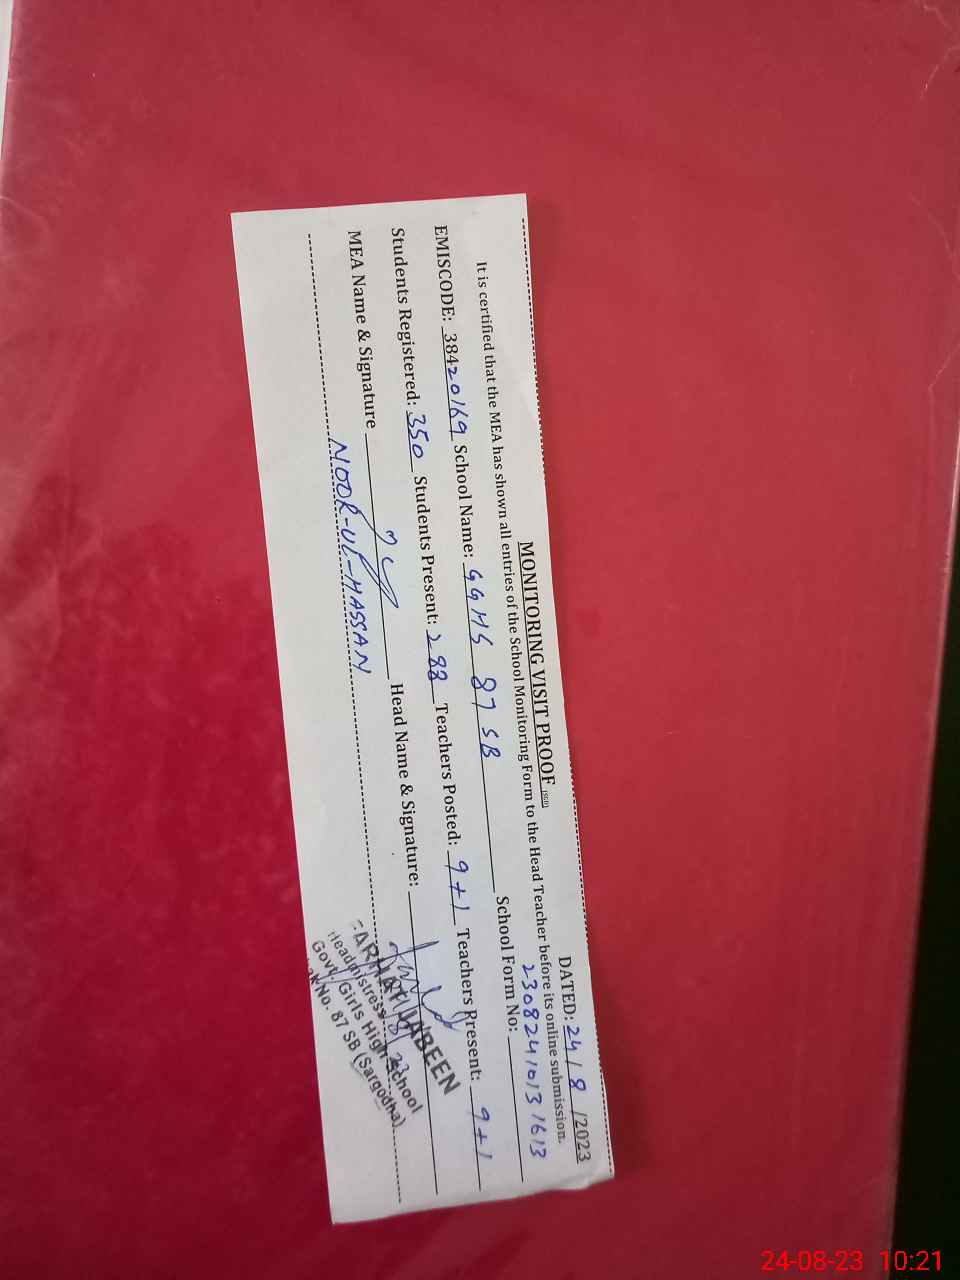 MONITORING VISIT PROOF
DATED: 24/8/2023
It is certified that the MEA has shown all entries of the School Monitoring Form to the Head Teacher before its online submission.
EMISCODE: 38420169 School Name: GGHS 87 SB School Form No: 23082410131613
Students Registered: 350 Students Present: 288 Teachers Posted: 9+1 Teachers Present: 9+1
MEA Name & Signature Head Name & Signature:
NOOR-UL-HASSAN
FARHAT JABEEN
Headmistress
Govt. Girls High School
No. 87 SB (Sargodha)
24-08-23 10:21